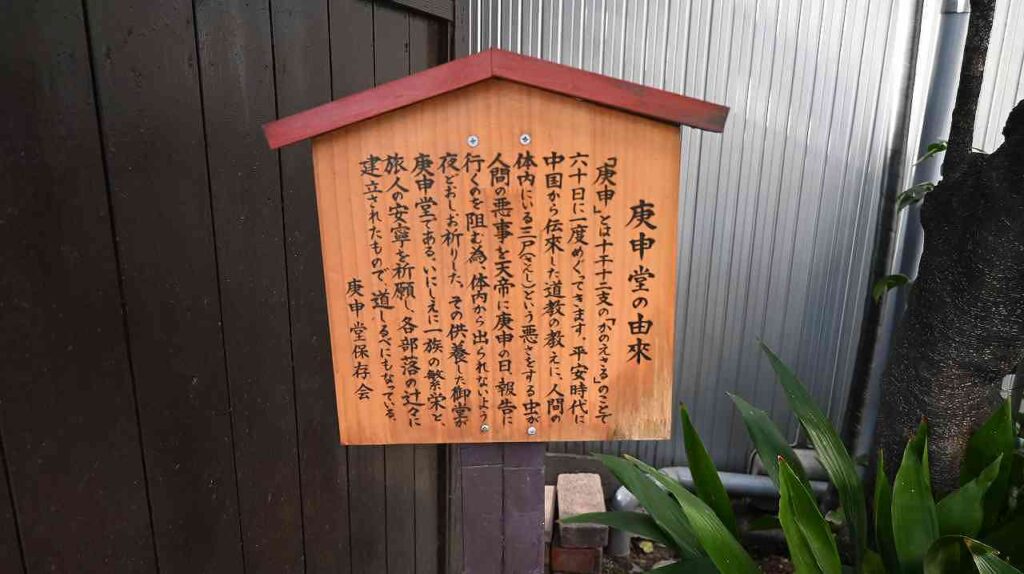 庚申堂の由來
「庚申」とは十干十二支の「かのえさる」のことで
六十日に一度めぐってきます。平安時代に
中国から伝來した道教の教えに、人間の
体内にいる三尸(さんし)という悪さをする虫が
人間の悪事を天帝に庚申の日、報告に
行くのを阻む為、体内から出られないよう
夜どおしお祈りした、その供養した御堂が
庚申堂である。いにしえに一族の繁栄と、
旅人の安寧を祈願し、各部落の辻々に
建立されたもので、道しるべにもなっている。
庚申堂保存会